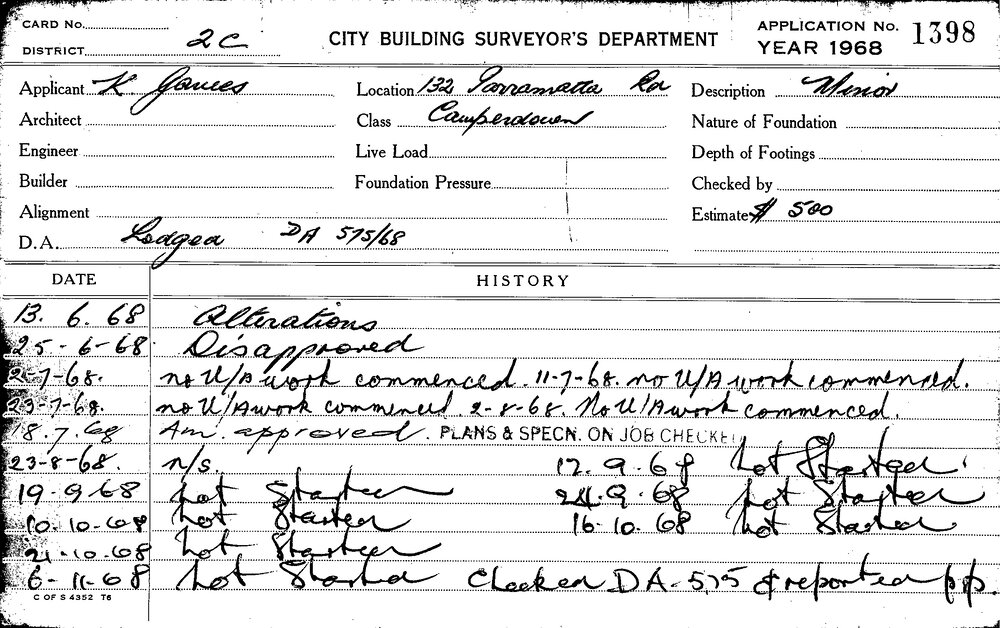 CARD No.
DISTRICT 2C
CITY BUILDING SURVEYOR'S DEPARTMENT
APPLICATION No. 1398
YEAR 1968
Applicant K. James Location 132 Parramatta Rd Description Minor
Architect Class Camperdown Nature of Foundation
Engineer Live Load Depth of Footings
Builder Foundation Pressure Checked by
Alignment Estimate $ 500
D.A. Lodged DA 575/68
DATE HISTORY
13. 6. 68 Alterations
25-6-68. Disapproved
2-7-68. no U/A work commenced. 11-7-68. no U/A work commenced.
23-7-68. no U/A work commenced. 2-8-68. No U/A work commenced.
18.7.68 Am. approved. PLANS & SPECN. ON JOB CHECKED
23-8-68. n/s. 12.9.68 not Started.
19.9.68 not Started 24.9.68 not Started
10.10.68 not Started 16.10.68 not Started
21.10.68 not Started
6-11-68 not Started Checked DA-575 & reported pp.
C OF S 4352 T6